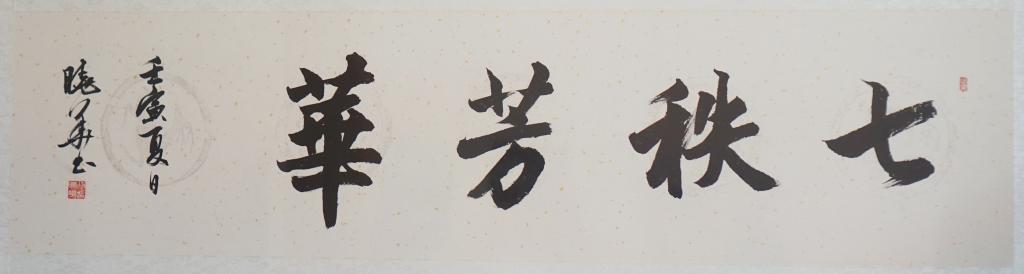 七秩芳華
壬寅夏日
曉華书